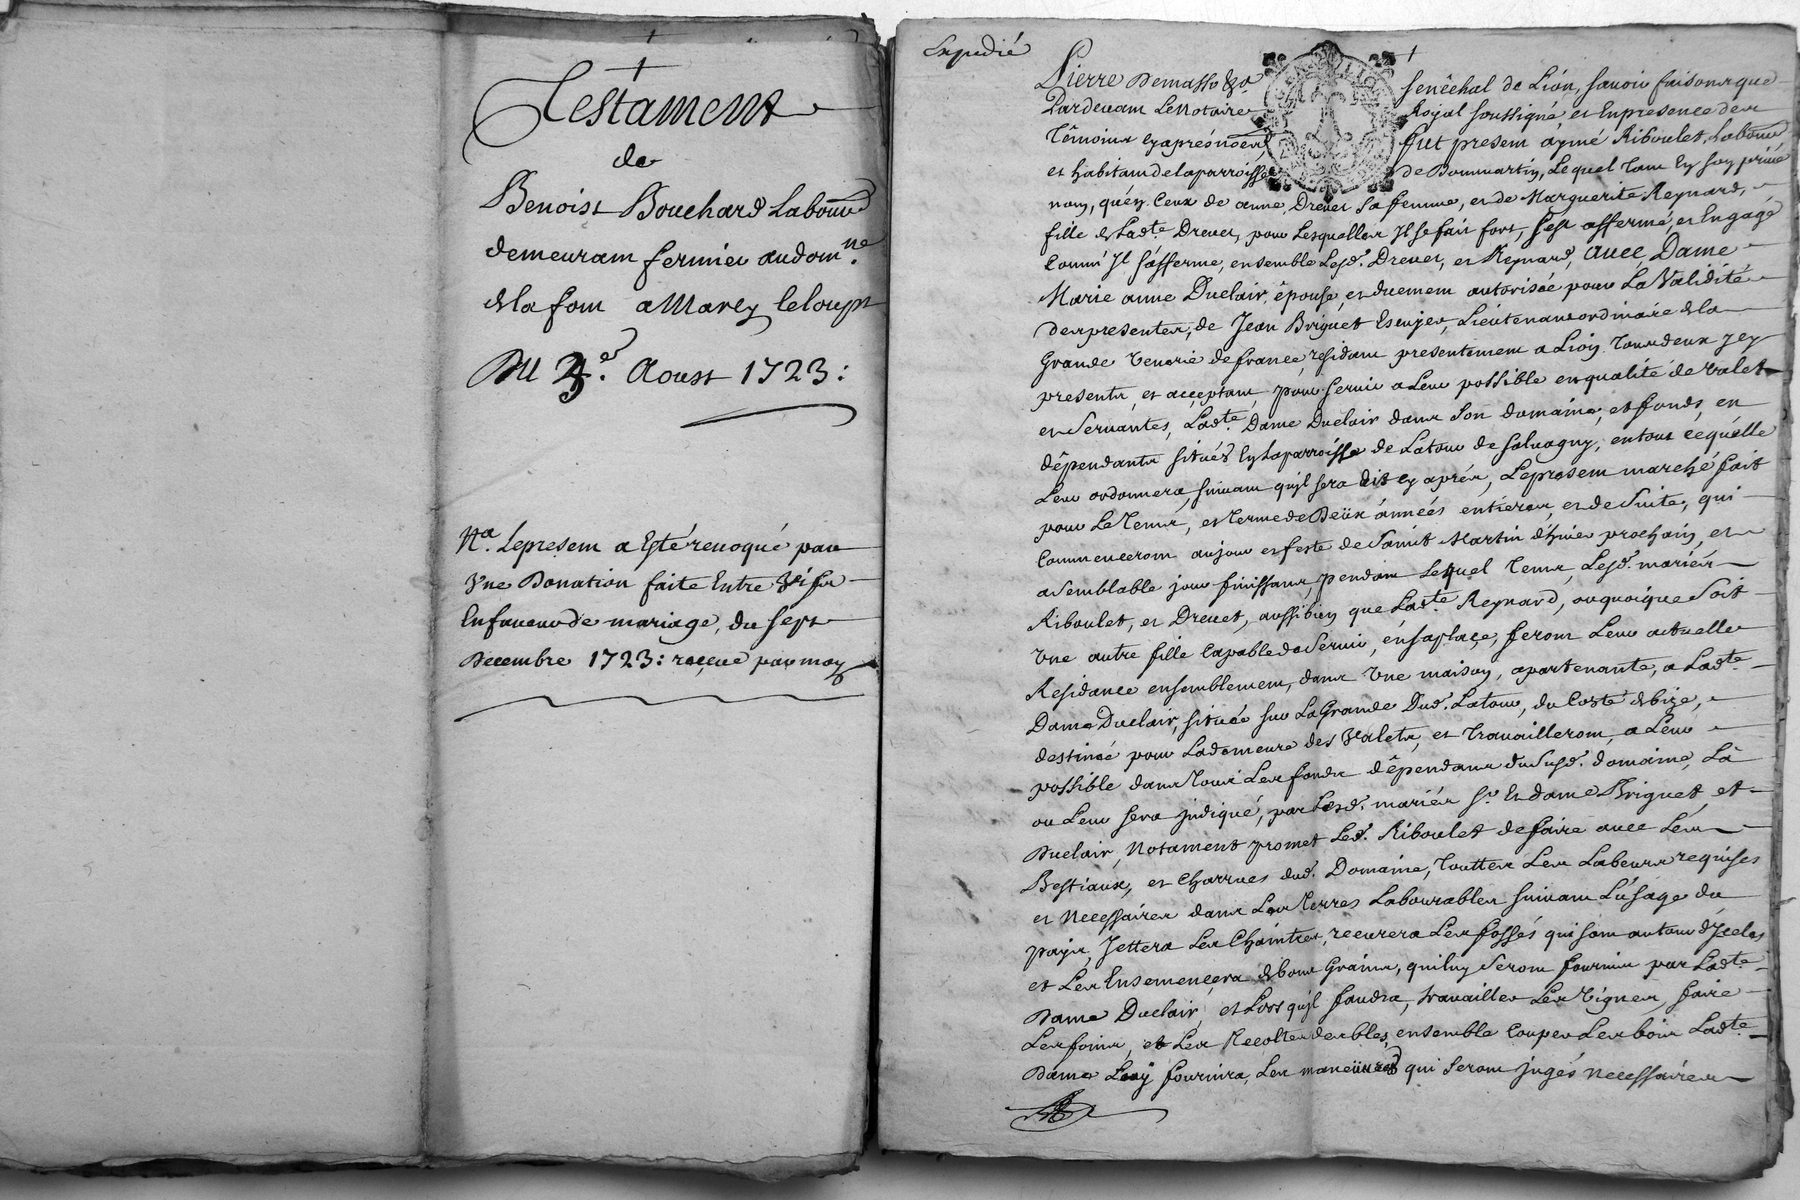 Testament
de
Benoist Bouchard Labour
demeurant fermier audom.ne
de la font a Marcy leloup
Du 3.e Aoust 1723:
Na. Lepresent a Esté reuoqué par
Vne Donation faite Entre Vifs
En faueur de mariage, du sept
Decembre 1723: reçeue par moy
Expedié
Pierre Demasso senêchal de Lion, sauoir faisons que
Pardeuant Le Notaire Royal soussigné, et En presence des
Têmoins cy aprés fut present aymé Riboulet, Labour
et habitant de la parroisse de Dommartin, Lequel tant En son priué
nom, qu'en Ceux de anne Dreuet sa femme, et de Marguerite Reynard,
fille de Ladte. Dreuet, pour Lesquelles Il se fait fort, s'est affermé, et Engagé
Comm' Il s'afferme, ensemble Lesd. Dreuet, et Reynard, auec Dame
Marie anne Duclair, êpouse, et duement autorisée pour La Validité
des presentes, de Jean Briguet Escuyer, Lieutenant ordinaire de la
Grande Venerie de france, residant presentement a Lion tous deux Icy
presents, et acceptant, pour seruir a Leur possible en qualité de Valet
et Seruantes, Ladte. Dame Duclair dans son domaine, et fonds, en
dêpendants situés En La parroisse de Latour de saluagny, en tout ce qu'elle
Leur ordonnera, suiuant qu'il sera dit cy aprés, Le present marché fait
pour Le tems, et terme de Deux années entieres, et de suite, qui
Commenceront au jour et feste de Saint Martin d'hiuer prochain, et
a semblable jour finissant, pendant Lequel tems, Lesd. mariés
Riboulet, et Dreuet, aussi bien que Ladte. Reynard, ou quoique soit
Vne autre fille Capable de seruir, en sa plaçe, feront Leur actuelle
Residance ensemblement, dans Vne maison, apartenante, a Ladte.
Dame Duclair, située sur La Grande Dud. Latour, du Costé de bize,
destinée pour La demeure des Valets, et trauailleront, a Leur
possible dans tous Les fonds dêpendans du susd. domaine, Là
ou Leur sera jndiqué, par Lesd. mariés Sr. Et dame Briguet, et
Duclair, Notament promet Led. Riboulet de faire auec Les
Bestiaux, et Charrues dud. Domaine, touttes Les Labeurs requises
et Necessaires dans Les terres Labourables suiuant L'usage du
pays, Jettera Les Chaintres, recurera Les fossés qui sont autour d'Icelles
et Les Ensemençera de bons Grains, qui luy seront fournis par Ladte.
Dame Duclair, et Lors qu'il faudra, trauailler Les Vignes, faire
Les foins, et Les Recoltes des bles, ensemble Couper Les bois Ladte.
Dame Luy fournira, Les maneuures qui seront jugés Necessaires